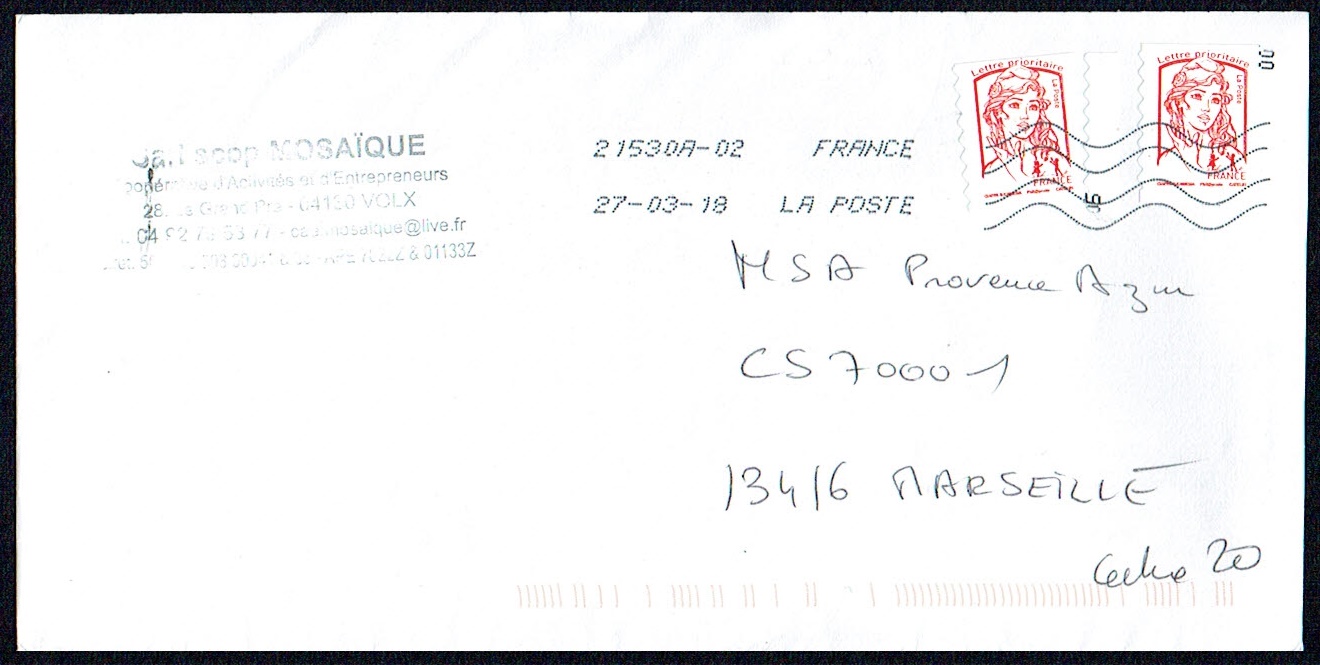 Sarl scop MOSAÏQUE
Coopérative d'Activités et d'Entrepreneurs
28, Le Grand Pré - 04130 VOLX
04 92 78 53 77 - cae.mosaique@live.fr
APE 7022Z & 01133Z
21530A-02 FRANCE
27-03-18 LA POSTE
Lettre prioritaire
La Poste
FRANCE
Lettre prioritaire
La Poste
FRANCE
MSA Provence Azur
CS 70001
13416 MARSEILLE
Cedex 20